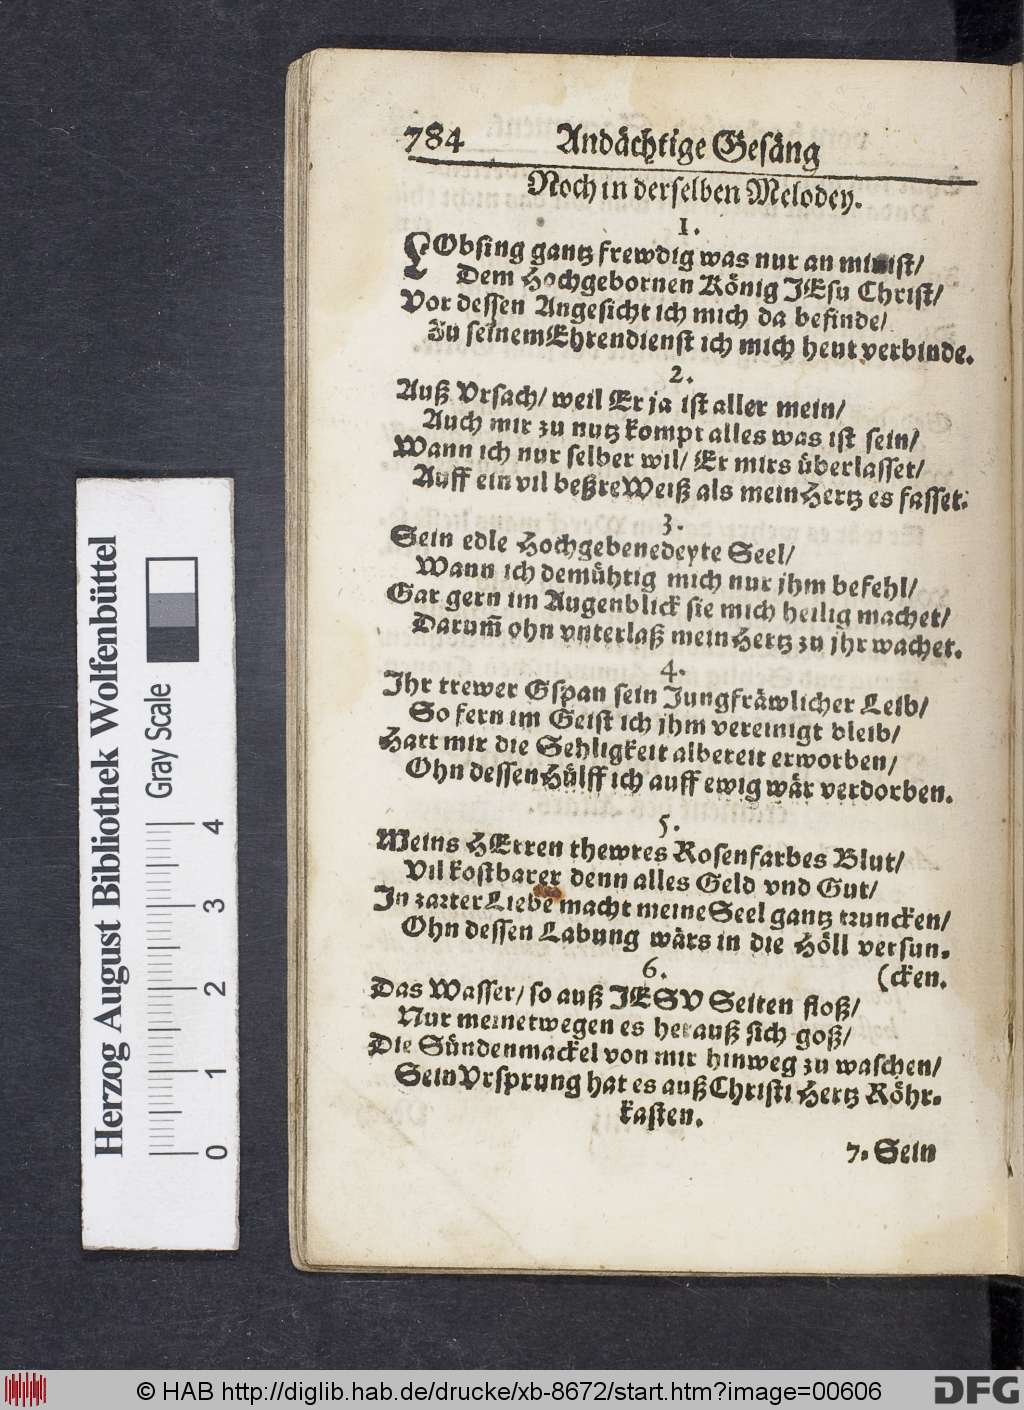 784 Andächtige Gesäng
Noch in derselben Melodey.
1.
LObsing gantz frewdig was nur an mir ist/
Dem Hochgebornen König JEsu Christ/
Vor dessen Angesicht ich mich da befinde/
Zu seinem Ehrendienst ich mich heut verbinde.
2.
Auß Vrsach/ weil Er ja ist aller mein/
Auch mir zu nutz kompt alles was ist sein/
Wann ich nur selber wil/ Er mirs überlasset/
Auff ein vil beßre Weiß als mein Hertz es fasset.
3.
Sein edle Hochgebenedeyte Seel/
Wann ich demühtig mich nur jhm befehl/
Gar gern im Augenblick sie mich heilig machet/
Darum̃ ohn vnterlaß mein Hertz zu jhr wachet.
4.
Jhr trewer Gspan sein Jungfräwlicher Leib/
So fern im Geist ich jhm vereinigt bleib/
Hatt mir die Sehligkeit albereit erworben/
Ohn dessen Hülff ich auff ewig wär verdorben.
5.
Meins HErren thewres Rosenfarbes Blut/
Vil kostbarer denn alles Geld vnd Gut/
Jn zarter Liebe macht meine Seel gantz truncken/
Ohn dessen Labung wärs in die Höll versun-
(cken.
6.
Das Wasser/ so auß JESV Seiten floß/
Nur meinetwegen es herauß sich goß/
Die Sündenmackel von mir hinweg zu waschen/
Sein Vrsprung hat es auß Christi Hertz Röhr-
kasten.
7. Sein
Herzog August Bibliothek Wolfenbüttel
Gray Scale
0 1 2 3 4
© HAB http://diglib.hab.de/drucke/xb-8672/start.htm?image=00606
DFG